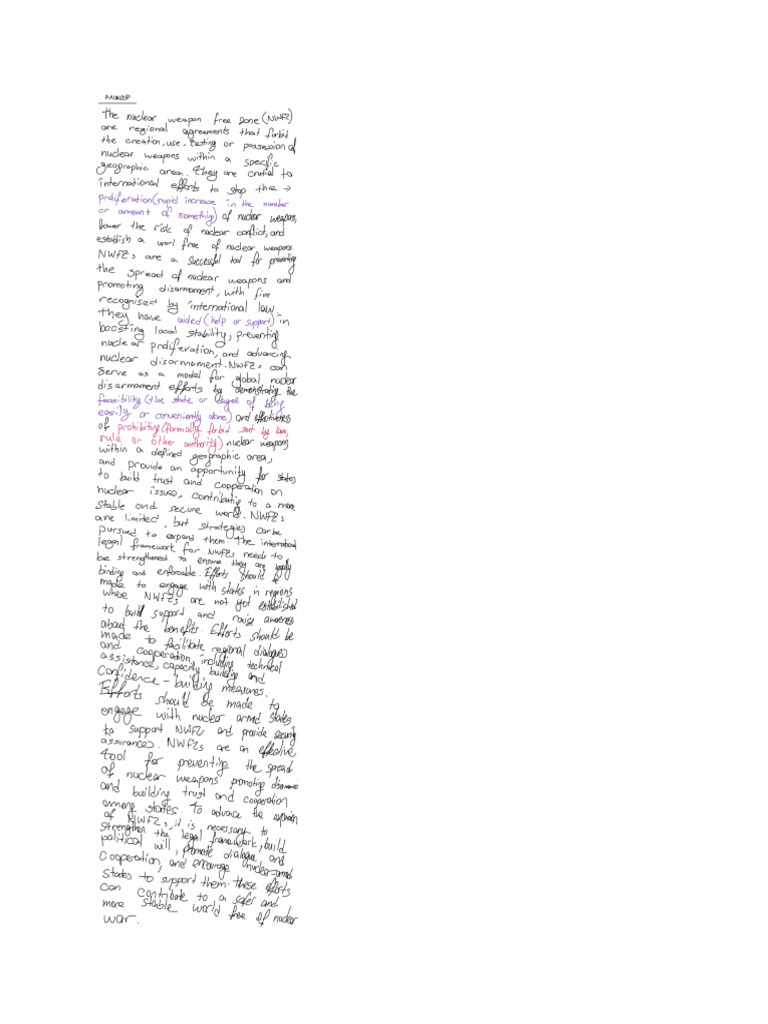 The nuclear weapon free zone (NWFZ)
are regional agreements that forbid
the creation, use, testing or possession of
nuclear weapons within a specific
geographic area. They are crutial to
international efforts to stop the →
proliferation (rapid increase in the number
or amount of something) of nuclear weapons,
lower the risk of nuclear conflict, and
establish a worl free of nuclear weapons.
NWFZs are a successful tool for preventing
the spread of nuclear weapons and
promoting disarmament, with five
recognised by international law.
They have aided (help or support) in
boosting local stability, preventing
nuclear proliferation, and advancing
nuclear disarmament. NWFZs can
serve as a model for global nuclear
disarmament efforts by demonstrating the
feasibility (the state or degree of being
easily or conveniently done) and effectiveness
of prohibiting (formally forbid smt by law,
rule or other authority) nuclear weapons
within a defined geographic area,
and provide an opportunity for states
to build trust and cooperation on
nuclear issues, contributing to a more
stable and secure world. NWFZs
are limited, but strategies can be
pursued to expand them. The international
legal framework for NWFZs needs to
be strengthened to ensure they are legally
binding and enforceable. Efforts should be
made to engage with states in regions
where NWFZs are not yet established
to build support and raise awareness
about the benefits. Efforts should be
made to facilitate regional dialogues
and cooperation, including technical
assistance, capacity building and
confidence-building measures.
Efforts should be made to
engage with nuclear armed states
to support NWFZ and provide security
assurances. NWFZs are an effective
tool for preventing the spread
of nuclear weapons, promoting
and building trust and cooperation
among states. To advance the expansion
of NWFZs, it is necessary to
strengthen the legal framework, build
political will, promote dialogue and
cooperation, and encourage nuclear-armed
states to support them. These efforts
can contribute to a safer and
more stable world free of nuclear
war.